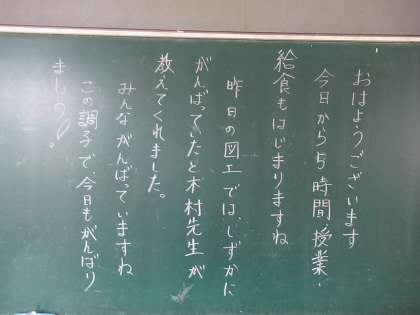 おはようございます
今日から5時間授業・
給食もはじまりますね
昨日の図工では、しずかに
がんばっていたと木村先生が
教えてくれました。
みんながんばっていますね
この調子で、今日もがんばり
ましょう!